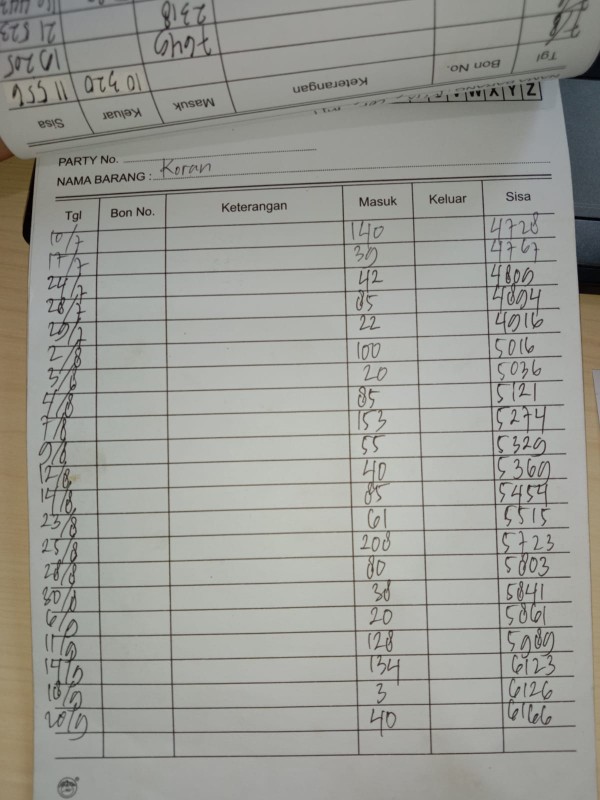 Tgl Bon No. Keterangan Masuk Keluar Sisa
10 320 11 556
7649 19 205
2318 21 523
PARTY No.
NAMA BARANG : Koran
Tgl Bon No. Keterangan Masuk Keluar Sisa
10/7 140 4728
17/7 39 4767
24/7 42 4809
28/7 85 4894
29/7 22 4916
2/8 100 5016
3/8 20 5036
4/8 85 5121
7/8 153 5274
9/8 55 5329
12/8 40 5369
14/8 85 5454
23/8 61 5515
25/8 208 5723
28/8 80 5803
30/8 38 5841
6/9 20 5861
11/9 128 5989
14/9 134 6123
18/9 3 6126
20/9 40 6166